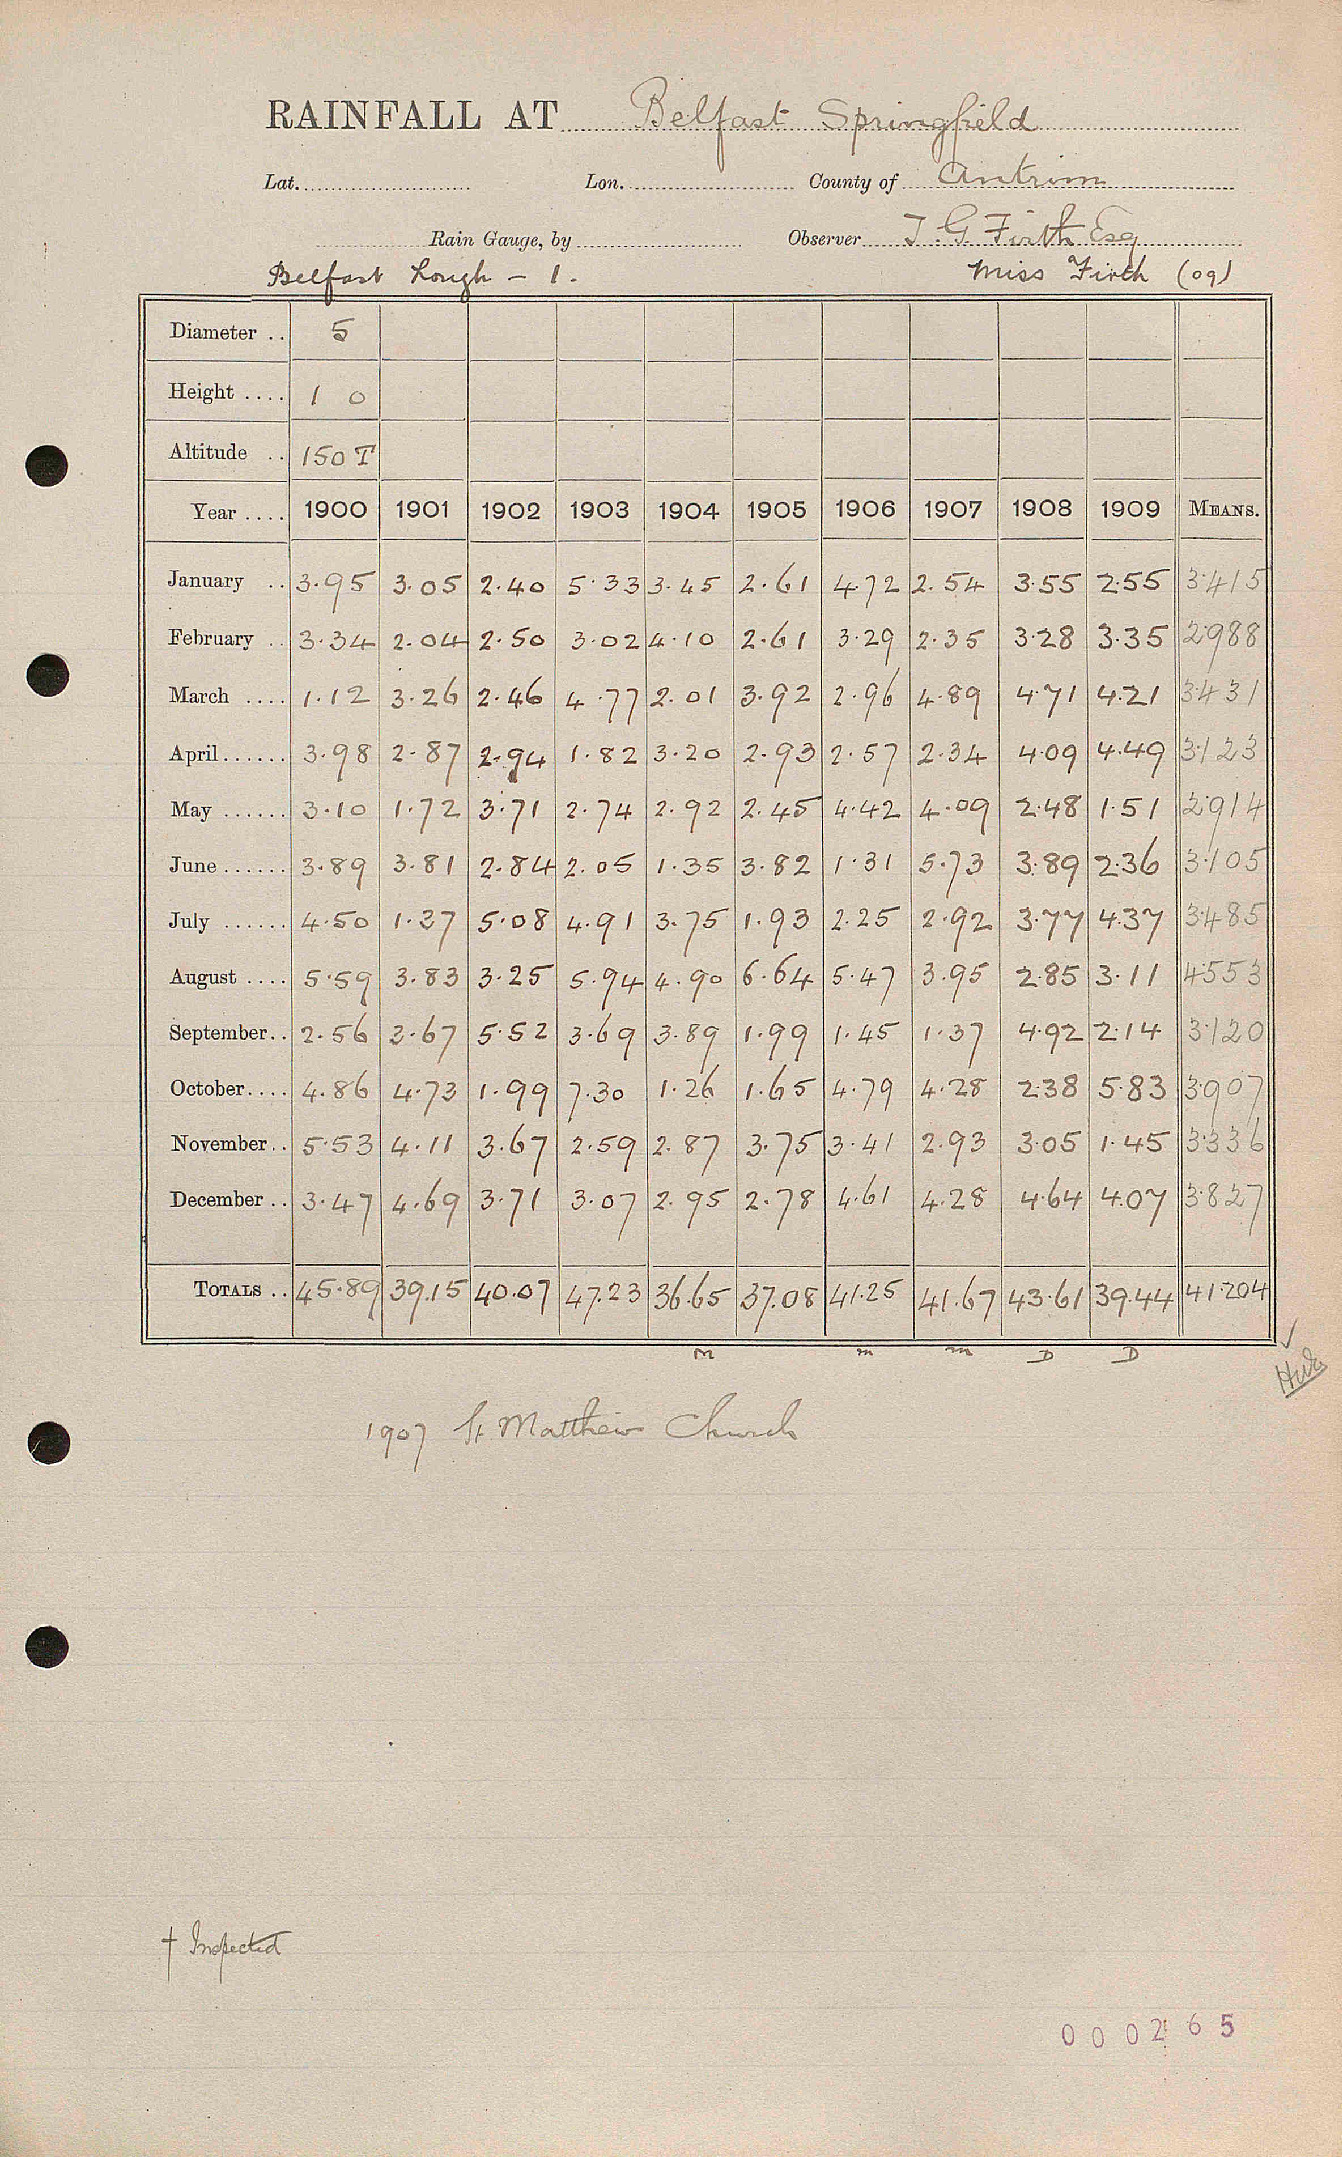 RAINFALL AT Belfast Springfield
Lat. Lon. County of Antrim
Rain Gauge, by Observer T. G. Firth Esq
Belfast Lough - 1. Miss Firth (09)
Diameter .. 5
Height .... 1 0
Altitude .. 150 T
Year .... 1900 1901 1902 1903 1904 1905 1906 1907 1908 1909 MEANS.
January .. 3.95 3.05 2.40 5.33 3.45 2.61 4.72 2.54 3.55 2.55 3.415
February .. 3.34 2.04 2.50 3.02 4.10 2.61 3.29 2.35 3.28 3.35 2.988
March .... 1.12 3.26 2.46 4.77 2.01 3.92 2.96 4.89 4.71 4.21 3.431
April ...... 3.98 2.87 2.94 1.82 3.20 2.93 2.57 2.34 4.09 4.49 3.123
May ...... 3.10 1.72 3.71 2.74 2.92 2.45 4.42 4.09 2.48 1.51 2.914
June ...... 3.89 3.81 2.84 2.05 1.35 3.82 1.31 5.73 3.89 2.36 3.105
July ...... 4.50 1.37 5.08 4.91 3.75 1.93 2.25 2.92 3.77 4.37 3.485
August .... 5.59 3.83 3.25 5.94 4.90 6.64 5.47 3.95 2.85 3.11 4.553
September.. 2.56 3.67 5.52 3.69 3.89 1.99 1.45 1.37 4.92 2.14 3.120
October.... 4.86 4.73 1.99 7.30 1.26 1.65 4.79 4.28 2.38 5.83 3.907
November.. 5.53 4.11 3.67 2.59 2.87 3.75 3.41 2.93 3.05 1.45 3.336
December .. 3.47 4.69 3.71 3.07 2.95 2.78 4.61 4.28 4.64 4.07 3.827
TOTALS .. 45.89 39.15 40.07 47.23 36.65 37.08 41.25 41.67 43.61 39.44 41.204
m m m D D
1907 St Matthew Church
† Inspected
000265